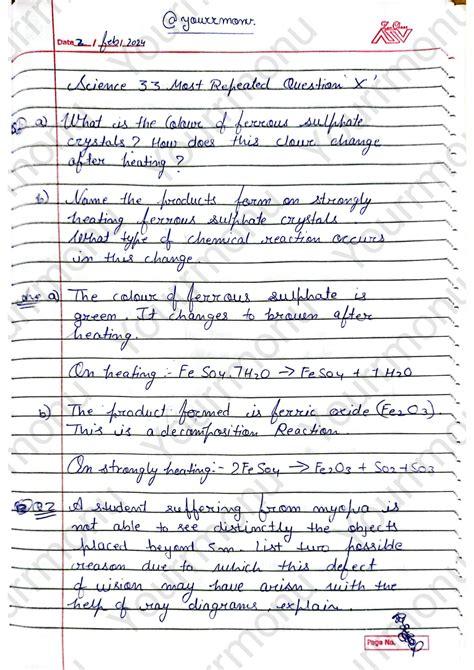 @yourrmonu.
Date 2 / Feb/ 2024
Science 33 Most Repeated Question 'X'
a) What is the Colour of ferrous sulphate
crystals? How does this clour change
after heating?
b) Name the products form on strongly
heating ferrous sulphate crystals
What type of chemical reaction occurs
in this change.
a) The colour of ferrous sulphate is
green. It changes to brown after
heating.
On heating :- FeSO4.7H2O → FeSO4 + 7H2O
b) The product formed is ferric oxide (Fe2O3).
This is a decomposition Reaction
On strongly heating:- 2FeSO4 → Fe2O3 + SO2+SO3
Q2 A student suffering from myopia is
not able to see distinctly the objects
placed beyond 5m. list two possible
reason due to which this defect
of vision may have arisn with the
help of ray diagrams, explain.
Page No.
Yourrmonu